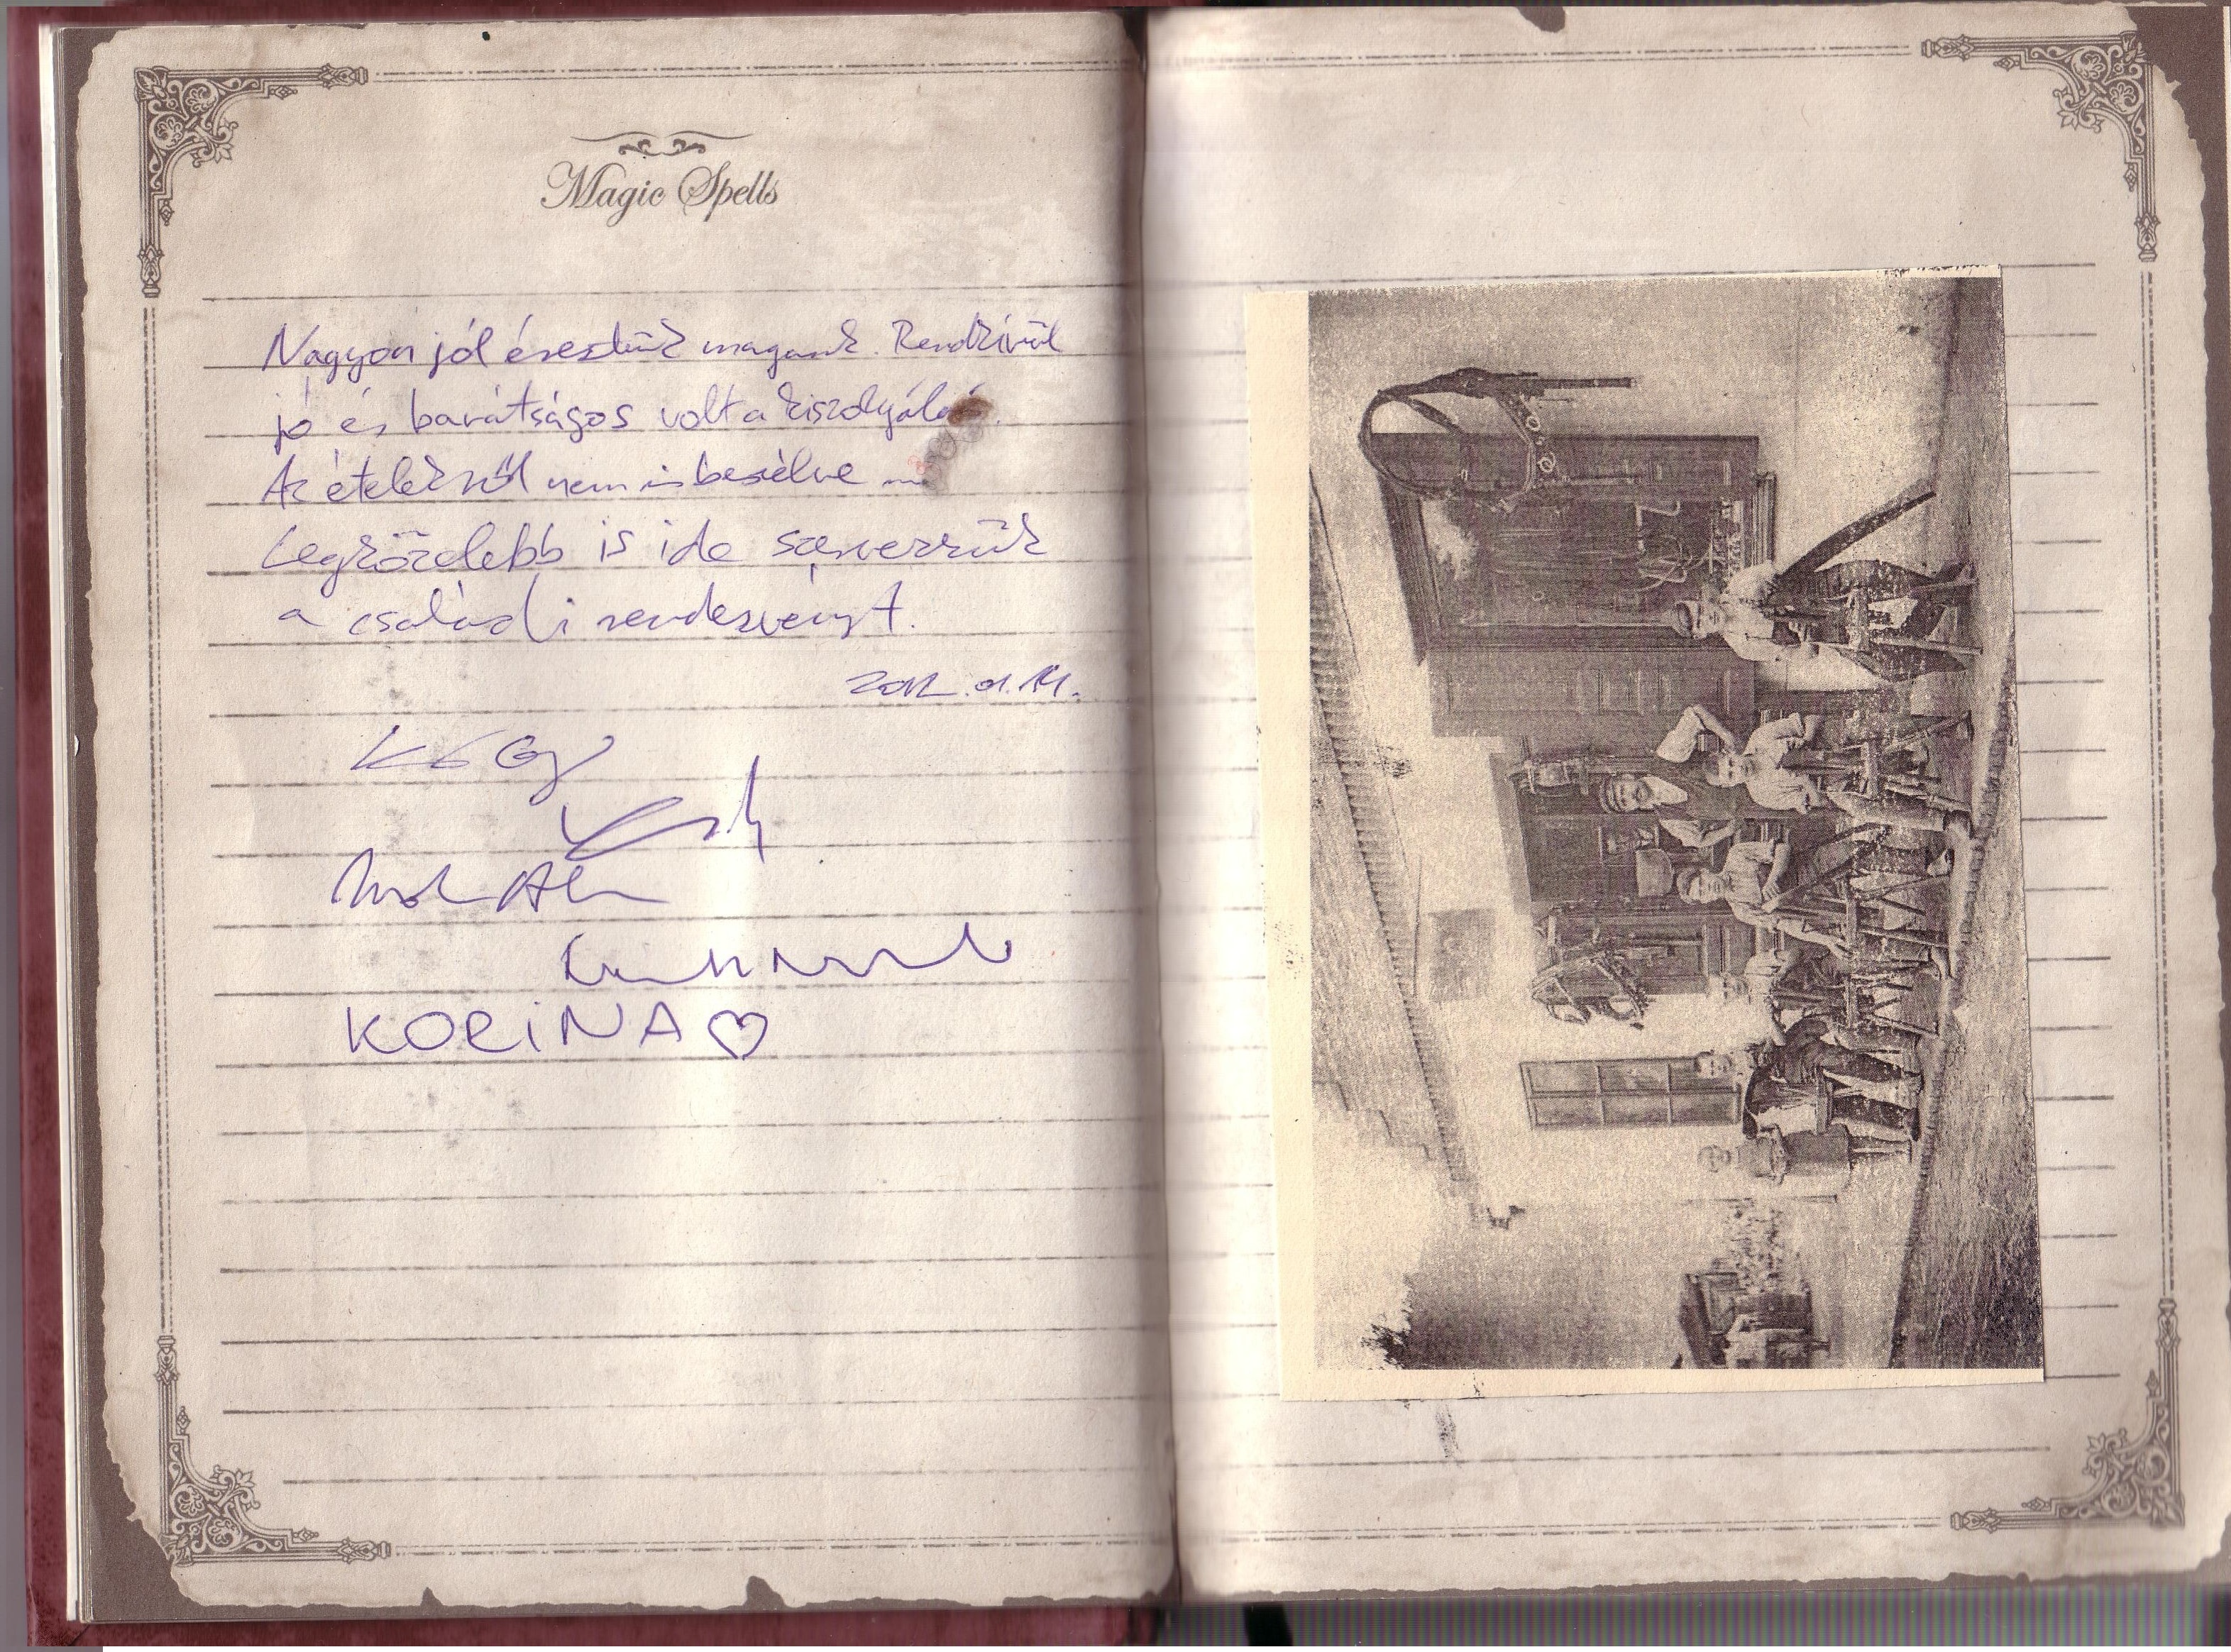 Magic Spells
Nagyon jól éreztük magunk. Rendkívül
jó és barátságos volt a kiszolgálás.
Az ételekről nem is beszélve ...
Legközelebb is ide szervezzük
a családi rendezvényt.
2012.01.14.
KORINA ♡